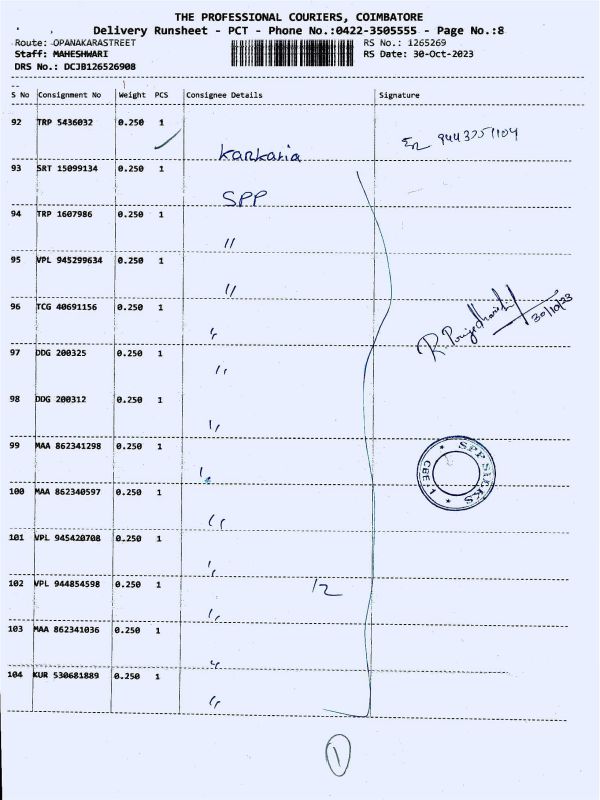 THE PROFESSIONAL COURIERS, COIMBATORE
Delivery Runsheet - PCT - Phone No.:0422-3505555 - Page No.:8
Route: OPANAKARASTREET RS No.: 1265269
Staff: MAHESHWARI RS Date: 30-Oct-2023
DRS No.: DCJB126526908
S No Consignment No Weight PCS Consignee Details Signature
92 TRP 5436032 0.250 1
Kankaria
93 SRT 15099134 0.250 1
SPP
94 TRP 1607986 0.250 1
"
95 VPL 945299634 0.250 1
"
96 TCG 40691156 0.250 1
"
30/10/23
97 DDG 200325 0.250 1
"
98 DDG 200312 0.250 1
"
99 MAA 862341298 0.250 1
"
SPP SILKS
CBE-1
100 MAA 862340597 0.250 1
"
101 VPL 945420708 0.250 1
"
102 VPL 944854598 0.250 1
12
"
103 MAA 862341036 0.250 1
"
104 KUR 530681889 0.250 1
"
1